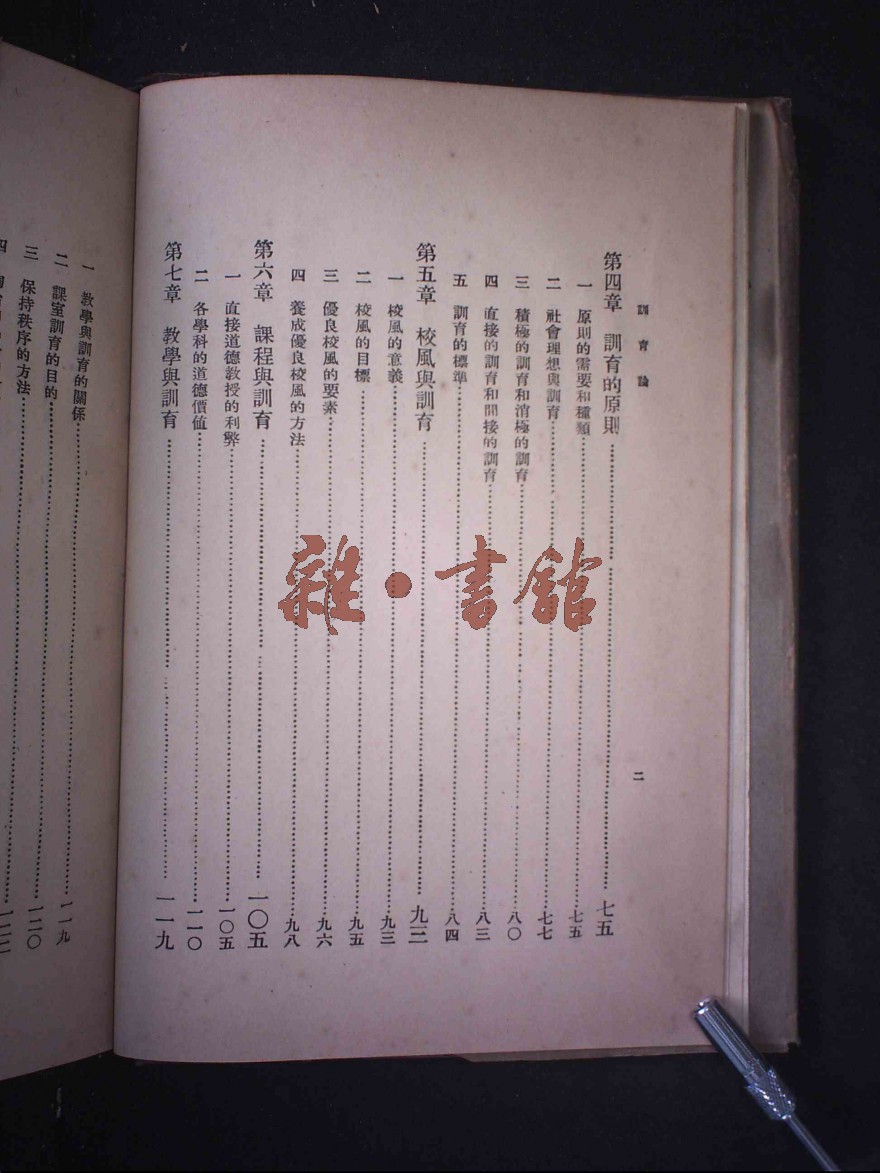 訓育論
二
第四章 訓育的原則……七五
一 原則的需要和種類……七五
二 社會理想與訓育……七七
三 積極的訓育和消極的訓育……八〇
四 直接的訓育和間接的訓育……八三
五 訓育的標準……八四
第五章 校風與訓育……九三
一 校風的意義……九三
二 校風的目標……九五
三 優良校風的要素……九六
四 養成優良校風的方法……九八
第六章 課程與訓育……一〇五
一 直接道德教授的利弊……一〇五
二 各學科的道德價值……一一〇
第七章 教學與訓育……一一九
一 教學與訓育的關係……一一九
二 課室訓育的目的……一二〇
三 保持秩序的方法……一二二
四
雜·書館